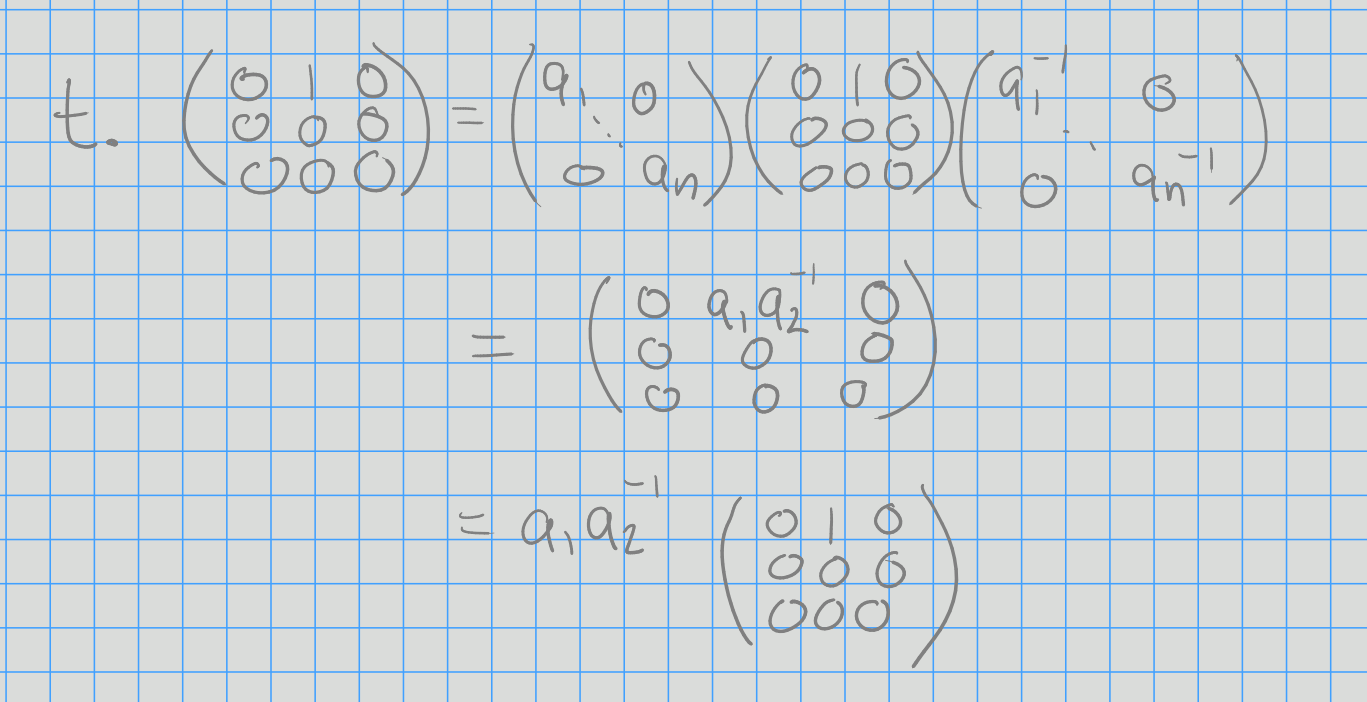 t. (0 1 0 = (a₁ 0 (0 1 0 (a₁⁻¹ 0
0 0 0) ⋱ 0 0 0) ⋱
0 0 0 0 aₙ) 0 0 0 0 aₙ⁻¹)
= (0 a₁a₂⁻¹ 0
0 0 0
0 0 0)
= a₁a₂⁻¹ (0 1 0
0 0 0
0 0 0)